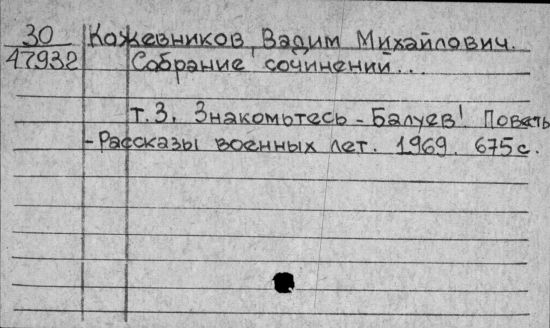 30 Кожевников, Вадим Михайлович.
47932 Собрание сочинений...
т. 3. Знакомьтесь - Балуев! Повесть
- Рассказы военных лет. 1969. 675 с.